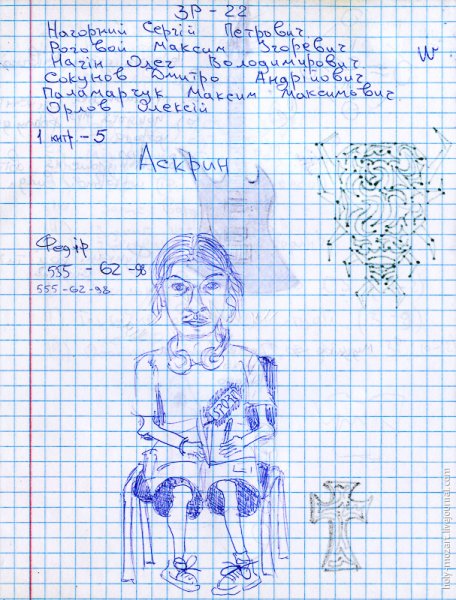 ЗР - 22
Нагорний Сергій Петрович
Роговой Максим Ігоревич
Начін Олег Володимирович
Сокунов Дмитро Андрійович
Паламарчук Максим Максимович
Орлов Олексій
w
1 кнтр - 5
Аскрин
Федір
555 - 62 - 98
555 - 62 - 98
SPORT
holy-mozart.livejournal.com